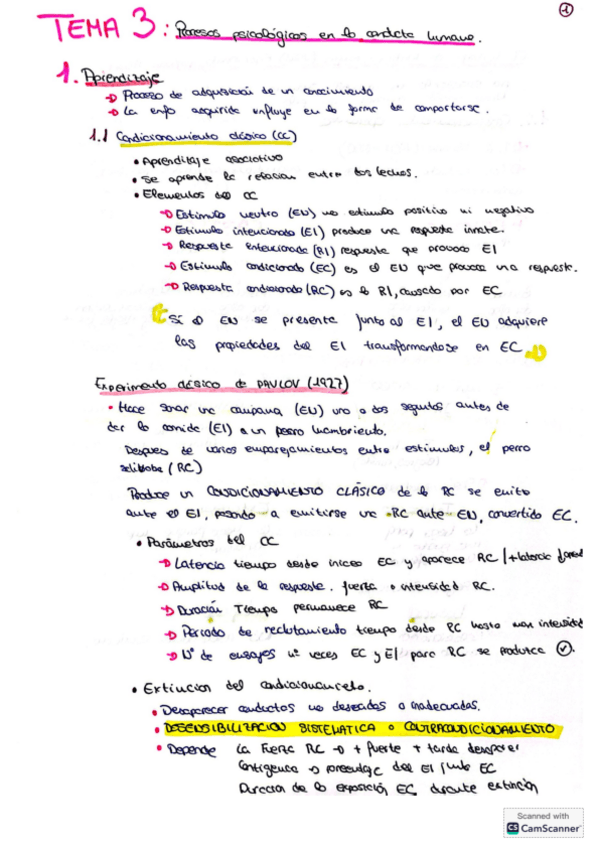 1
TEMA 3: Procesos psicológicos en la conducta humana.
1. Aprendizaje
→ Proceso de adquisición de un conocimiento
→ La info adquirida influye en la forma de comportarse.
1.1 Condicionamiento clásico (CC)
• Aprendizaje asociativo
• Se aprende la relación entre dos hechos.
• Elementos del CC
→ Estímulo neutro (EN) no estímulo positivo ni negativo
→ Estímulo intencionado (EI) produce una respuesta innata.
→ Respuesta intencionada (RI) respuesta que provoca EI
→ Estímulo condicionado (EC) es el EN que provoca una respuesta.
→ Respuesta condicionada (RC) es la RI, causado por EC
Si el EN se presenta junto al EI, el EN adquiere
las propiedades del EI transformandose en EC.
Experimento clásico de PAVLOV (1927)
• Hace sonar una campana (EN) uno o dos segundos antes de
dar la comida (EI) a un perro hambriento.
Despues de varios emparejamientos entre estimulos, el perro
salibaba (RC)
Produce un CONDICIONAMIENTO CLÁSICO de la RC se emite
ante el EI, pasando a emitirse una RC ante EN, convertido EC.
• Parámetros del CC
→ Latencia tiempo desde inicio EC y aparece RC / + latencia
→ Amplitud de la respuesta. fuerza o intensidad RC.
→ Duración Tiempo permanece RC
→ Periodo de reclutamiento tiempo desde RC hasta max intensidad
→ Nº de ensayos nº veces EC y EI para RC se produzca ✓.
• Extincion del condicionamiento.
• Desaparecer conductas no deseadas o inadecuadas.
• DESENSIBILIZACION SISTEMATICA o CONTRACONDICIONAMIENTO
• Depende La Fuerza RC → + fuerte + tarda desaparecer
Contigencia → porcentaje del EI junto EC
Duracion de la exposición EC durante extinción
Scanned with
CS CamScanner